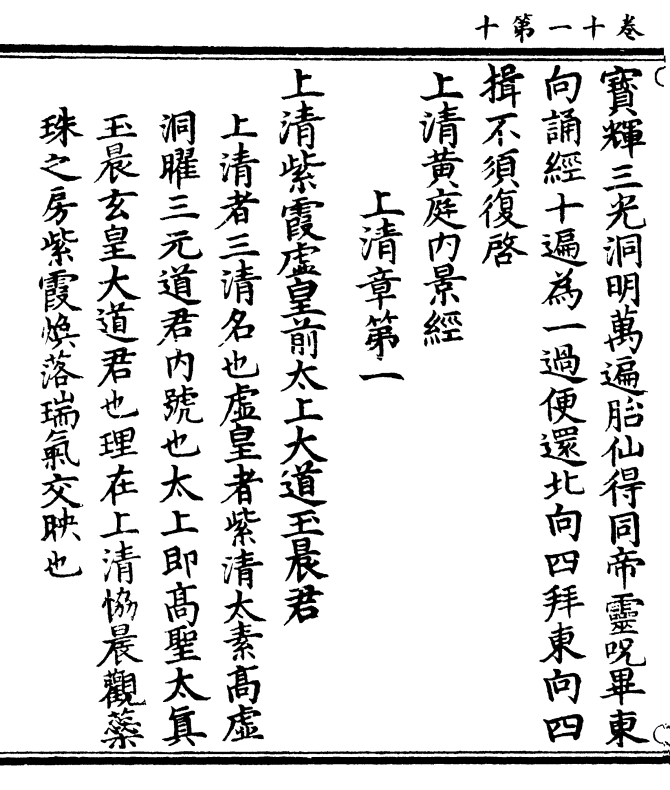 卷十一第十
寶輝三光洞明萬遍胎仙得同帝靈呪畢東
向誦經十遍為一過便還北向四拜東向四
揖不須復啓
上清黃庭內景經
上清章第一
上清紫霞虛皇前太上大道玉晨君
上清者三清名也虛皇者紫清太素高虛
洞曜三元道君內號也太上即高聖太真
玉晨玄皇大道君也理在上清恊晨觀蘂
珠之房紫霞煥落瑞氣交映也